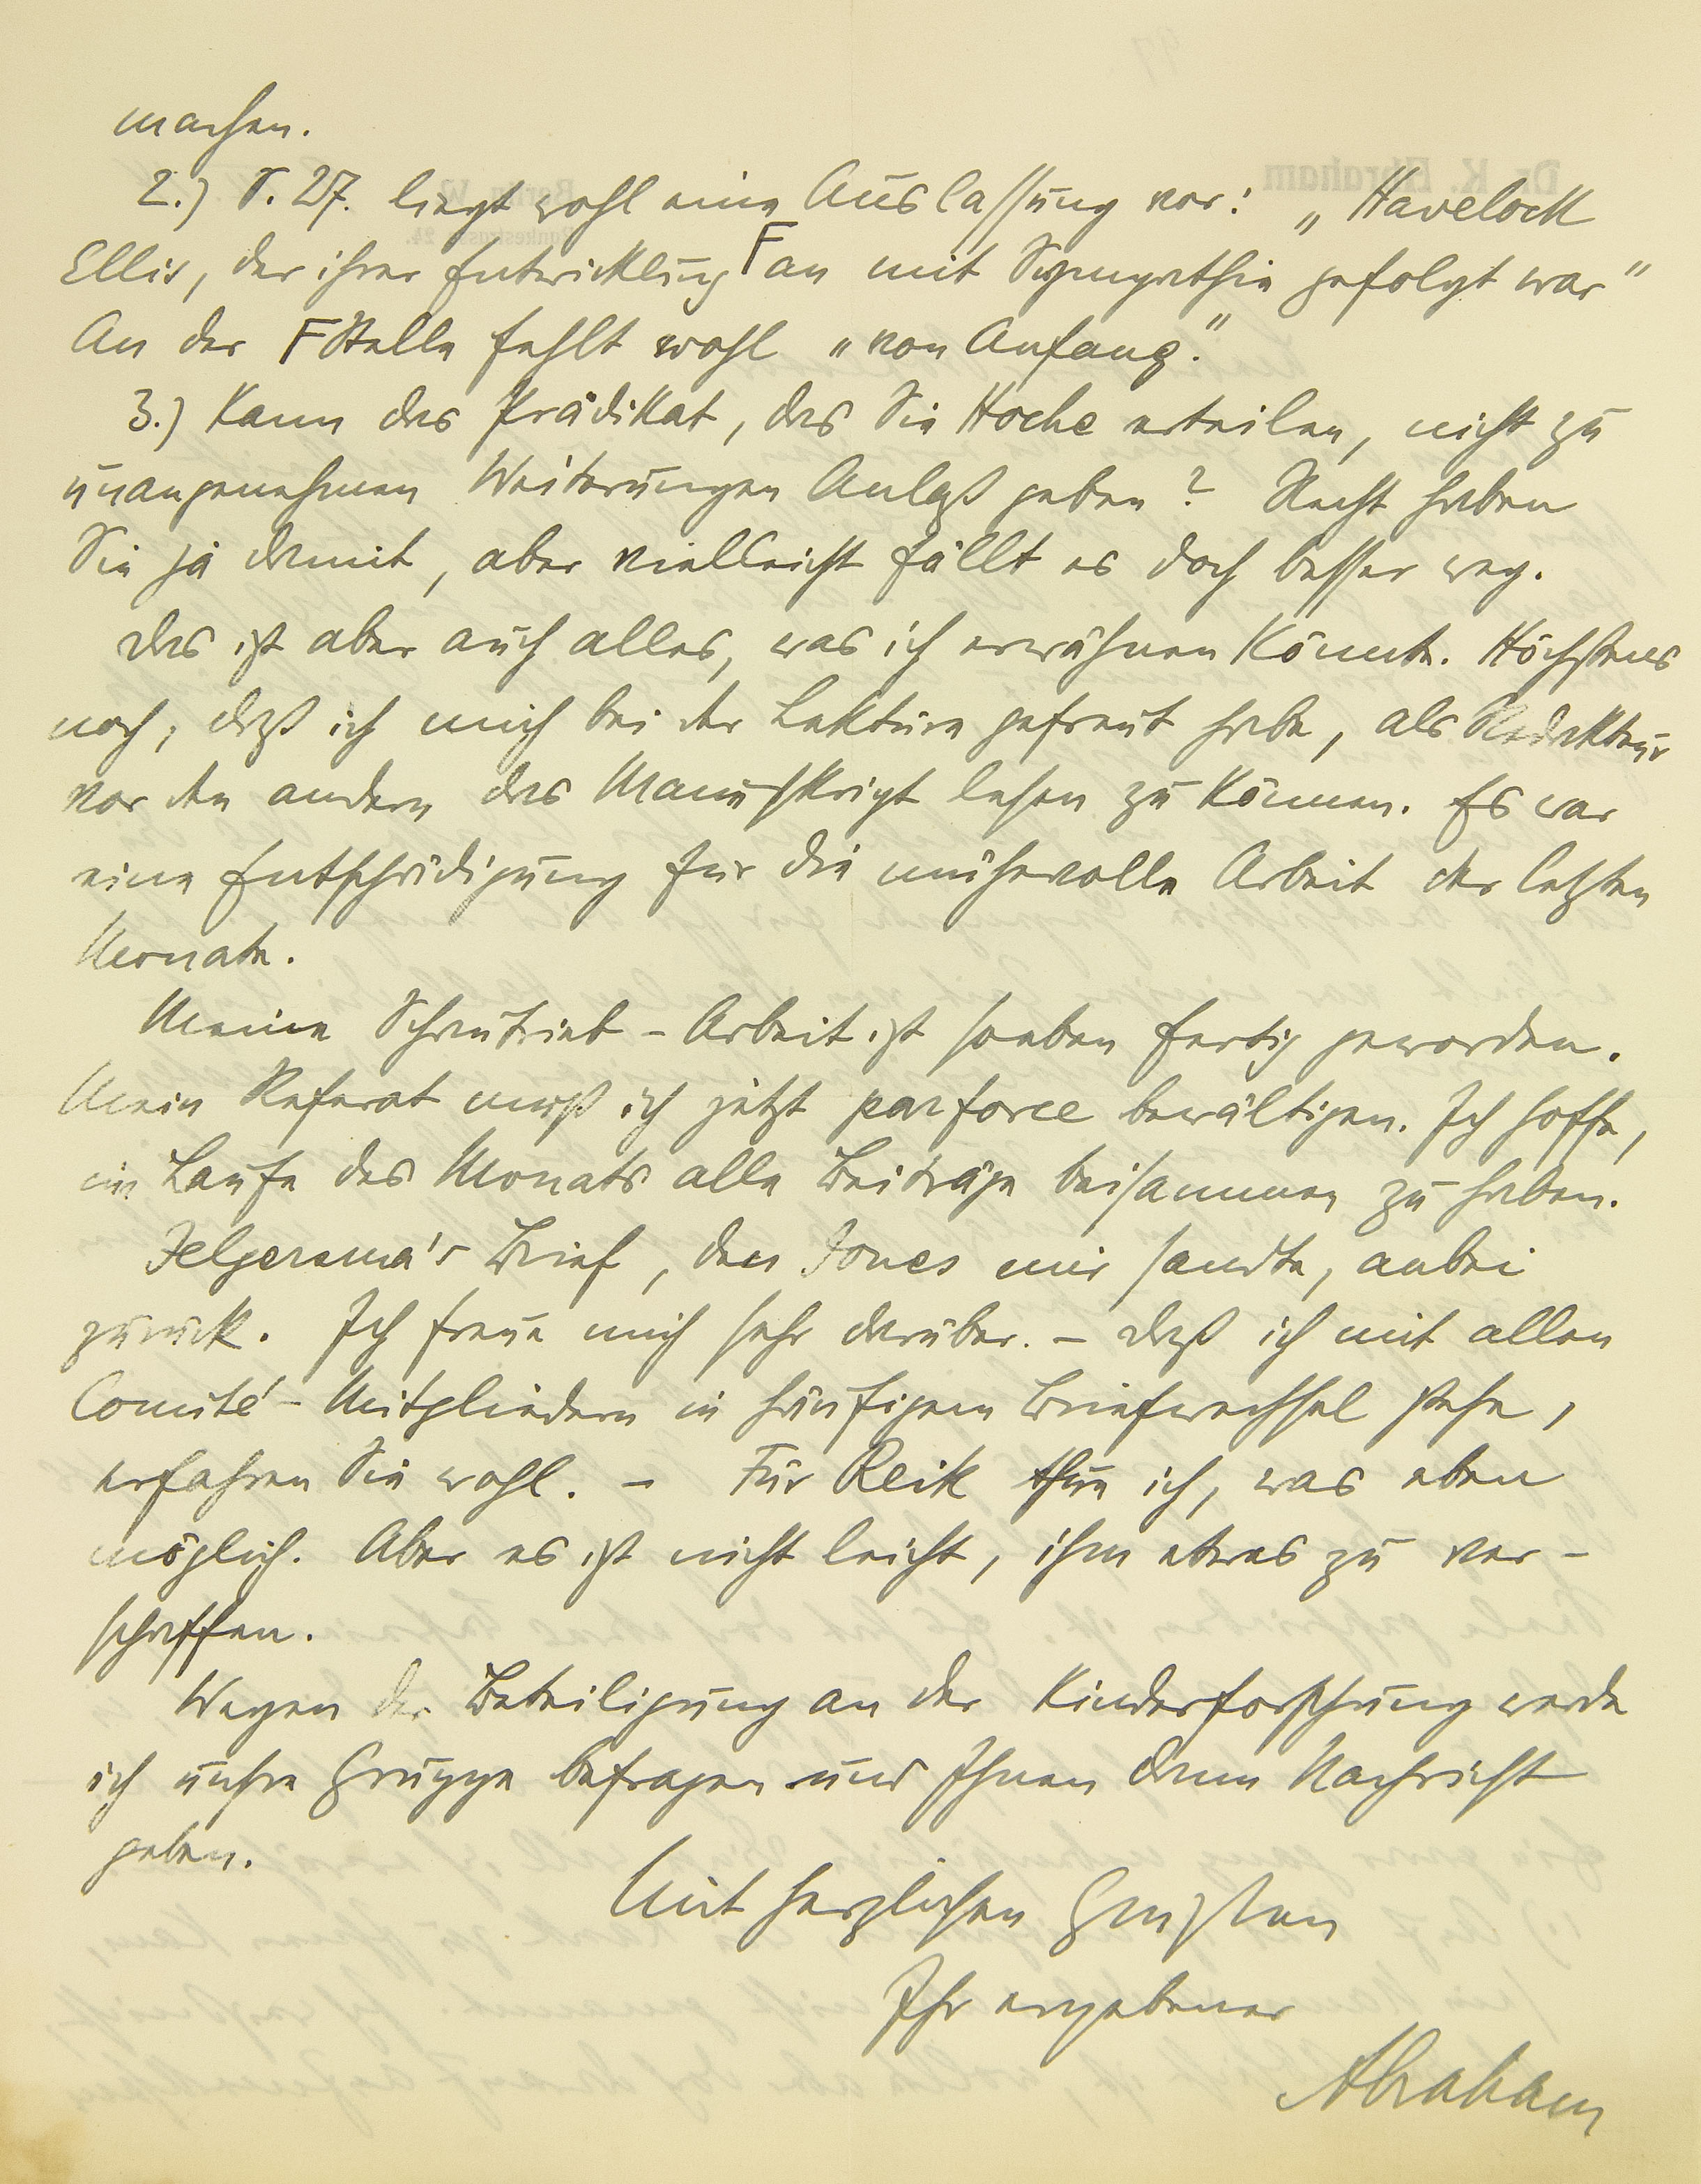 machen.
2.) S. 27. liegt wohl eine Auslassung vor: „Havelock
Ellis, der ihrer Entwicklung Γ an mit Sympathie gefolgt war"
An der Γ Stelle fehlt wohl „von Anfang."
3.) Kann das Prädikat, das Sie Hoche erteilen, nicht zu
unangenehmen Weiterungen Anlaß geben? Recht haben
Sie ja damit, aber vielleicht fällt es doch besser weg.
Das ist aber auch alles, was ich erwähnen könnte. Höchstens
noch, daß ich mich bei der Lektüre gefreut habe, als Redakteur
vor den andern das Manuskript lesen zu können. Es war
eine Entschädigung für die mühevolle Arbeit der letzten
Monate.
Meine Schautrieb-Arbeit ist soeben fertig geworden.
Mein Referat muß ich jetzt par force bewältigen. Ich hoffe,
im Laufe des Monats alle Beiträge beisammen zu haben.
Jelgersma's Brief, den Jones mir sandte, anbei
zurück. Ich freue mich sehr darüber. – Daß ich mit allen
Comité-Mitgliedern in häufigem Briefwechsel stehe,
erfahren Sie wohl. – Für Reik thue ich, was eben
möglich. Aber es ist nicht leicht, ihm etwas zu ver-
schaffen.
Wegen der Beteiligung an der Kinderforschung werde
ich unsre Gruppe befragen und Ihnen dann Nachricht
geben.
Mit herzlichen Grüßen
Ihr ergebener
Abraham